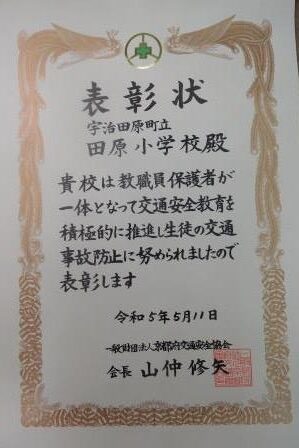 表彰状
宇治田原町立
田原小学校殿
貴校は教職員保護者が
一体となって交通安全教育を
積極的に推進し生徒の交通
事故防止に努められましたので
表彰します
令和5年5月11日
一般財団法人京都府交通安全協会
会長 山仲修矢